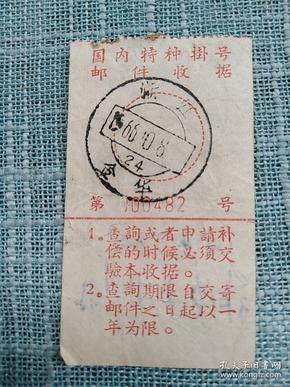 国内特种掛号
邮件收据
浙江
66.10.8
24
金华
第 100482 号
1。查詢或者申請补
偿的时候必須交
驗本收据。
2。查詢期限自交寄
邮件之日起以一
年为限。
孔夫子旧书网